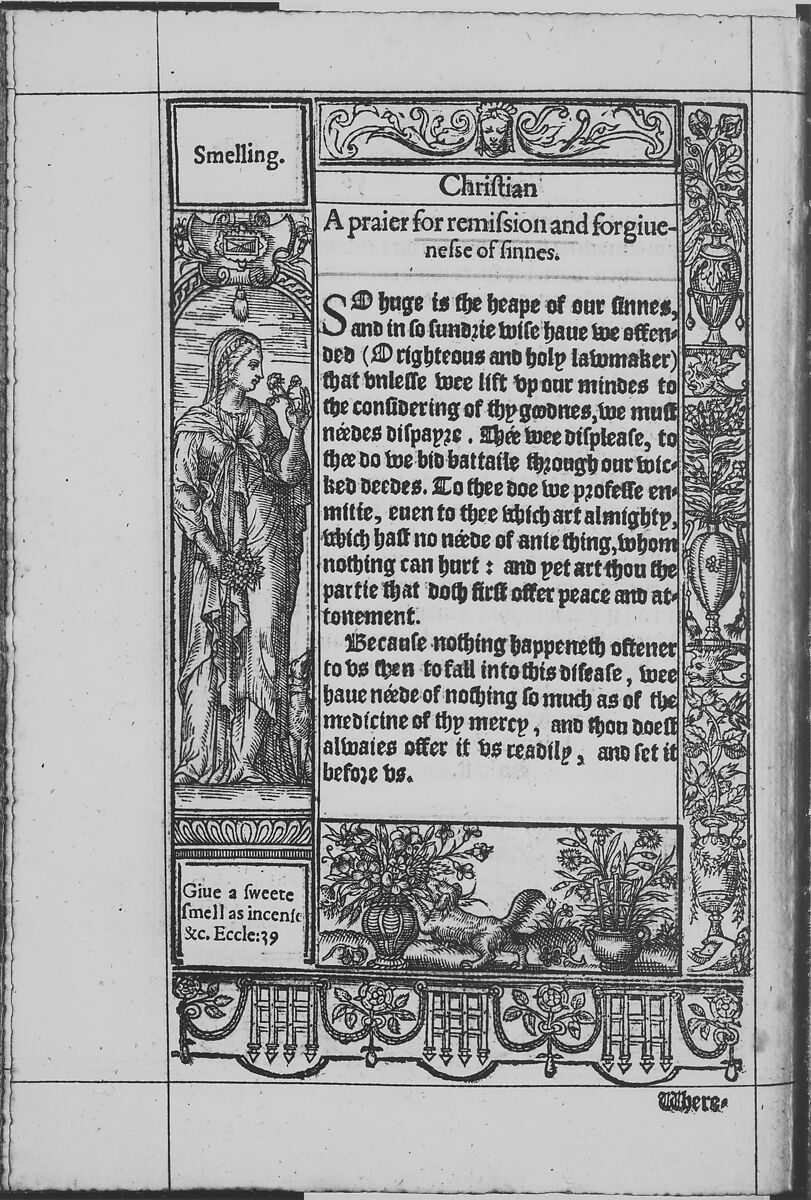 Smelling.
Chriſtian
A praier for remiſsion and forgiue-
neſse of ſinnes.
SO huge is the heape of our ſinnes,
and in ſo ſundrie wiſe haue we offen-
ded (O righteous and holy lawmaker)
that vnleſſe wee lift vp our mindes to
the conſidering of thy goodnes, we muſt
néedes diſpayre. Thée wee diſpleaſe, to
thee do we bid battaile through our wic-
ked deedes. To thee doe we profeſſe en-
mitie, euen to thee which art almighty,
which haſt no néede of anie thing, whom
nothing can hurt: and yet art thou the
partie that doth firſt offer peace and at-
tonement.
Becauſe nothing happeneth oftener
to vs then to fall into this diſeaſe, wee
haue néede of nothing ſo much as of the
medicine of thy mercy, and thou doeſt
alwaies offer it vs readily, and ſet it
before vs.
Giue a ſweete
ſmell as incenſe
&c. Eccle: 39
Where-